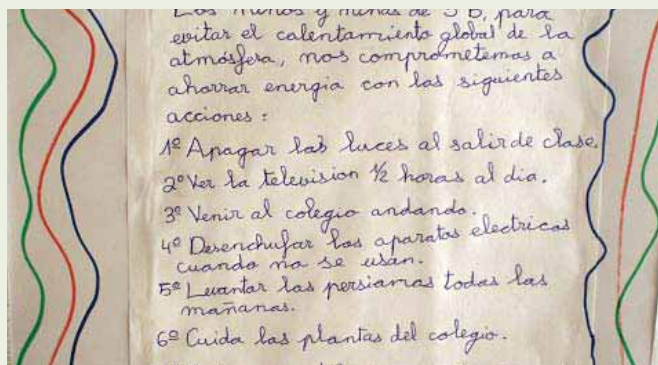 Los niños y niñas de 5 B, para
evitar el calentamiento global de la
atmósfera, nos comprometemos a
ahorrar energia con las siguientes
acciones:
1º Apagar las luces al salir de clase.
2º Ver la television 1/2 horas al dia.
3º Venir al colegio andando.
4º Desenchufar los aparatos electricos
cuando no se usan.
5º Levantar las persianas todas las
mañanas.
6º Cuida las plantas del colegio.